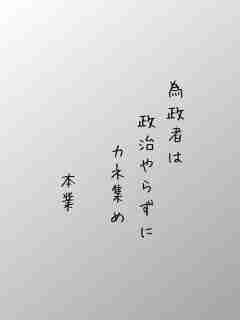 為政者は
政治やらずに
カネ集め
本業